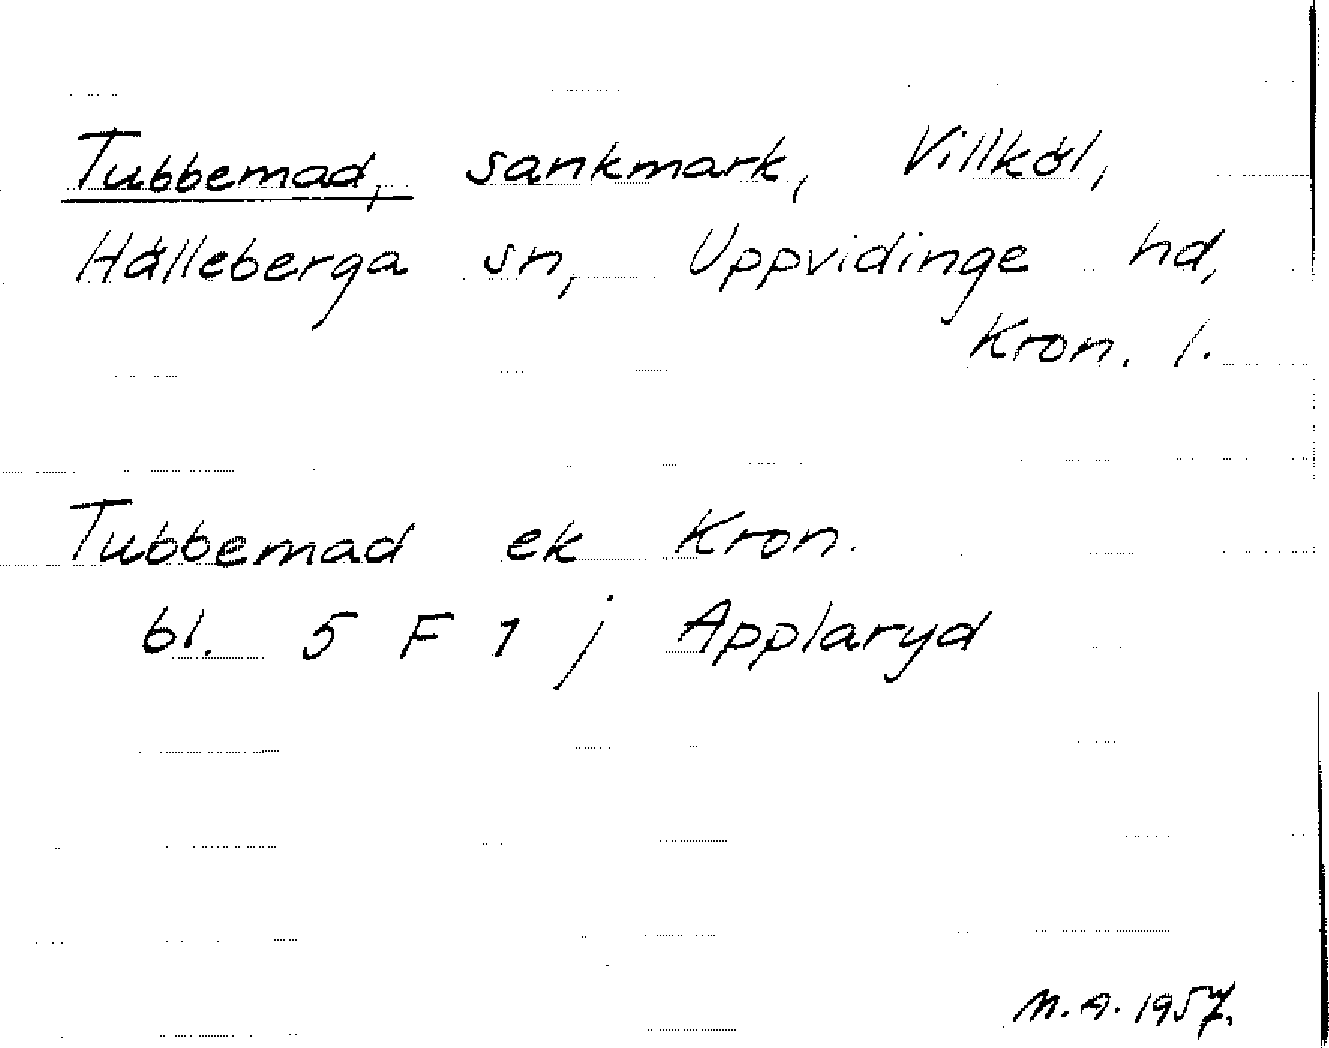 Tubbemad, sankmark, Villköl,
Hälleberga sn, Uppvidinge hd,
Kron. l.
Tubbemad ek Kron.
bl. 5 F 1 j Applaryd
M.A. 1957.